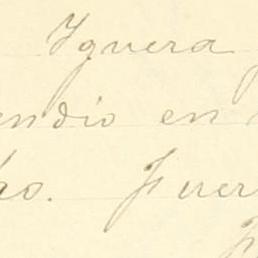 Yguera
endio en
ao. Fuer